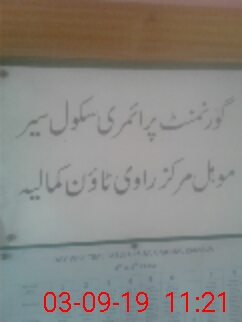 گورنمنٹ پرائمری سکول سیر
موہل مرکز راوی ٹاؤن کمالیہ
03-09-19 11:21